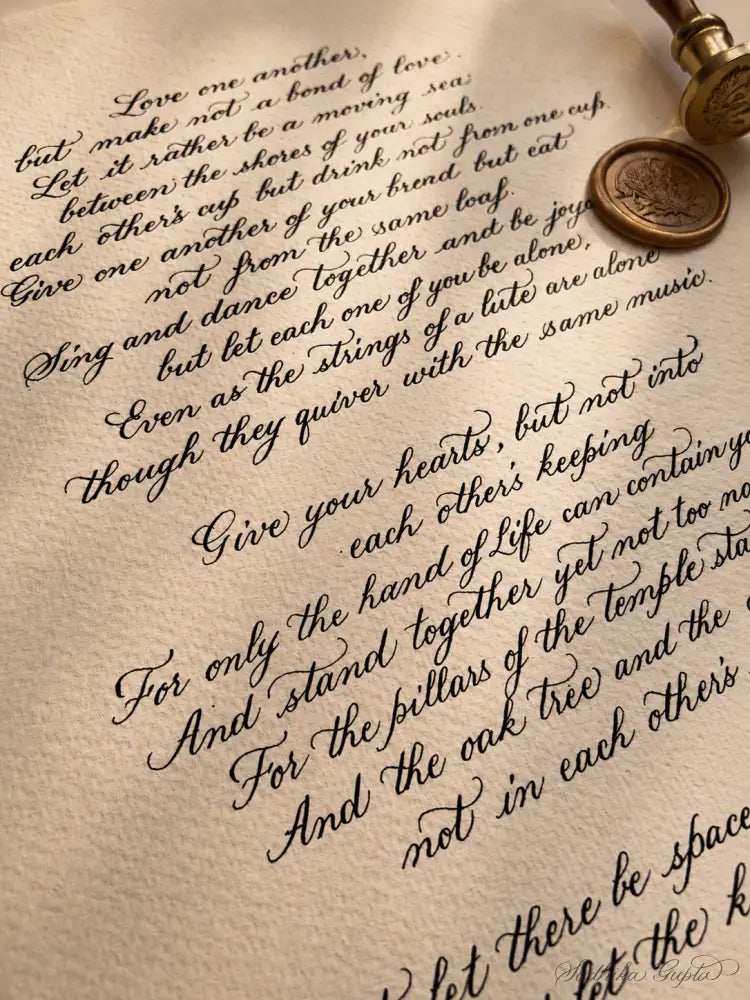 Love one another,
but make not a bond of love.
Let it rather be a moving sea
between the shores of your souls.
each other's cup but drink not from one cup.
Give one another of your bread but eat
not from the same loaf.
Sing and dance together and be
but let each one of you be alone,
Even as the strings of a lute are alone
though they quiver with the same music.
Give your hearts, but not into
each other's keeping
For only the hand of Life can contain
And stand together yet not too
For the pillars of the temple
And the oak tree and the
not in each other's
let there be
let the
Sadhika Gupta